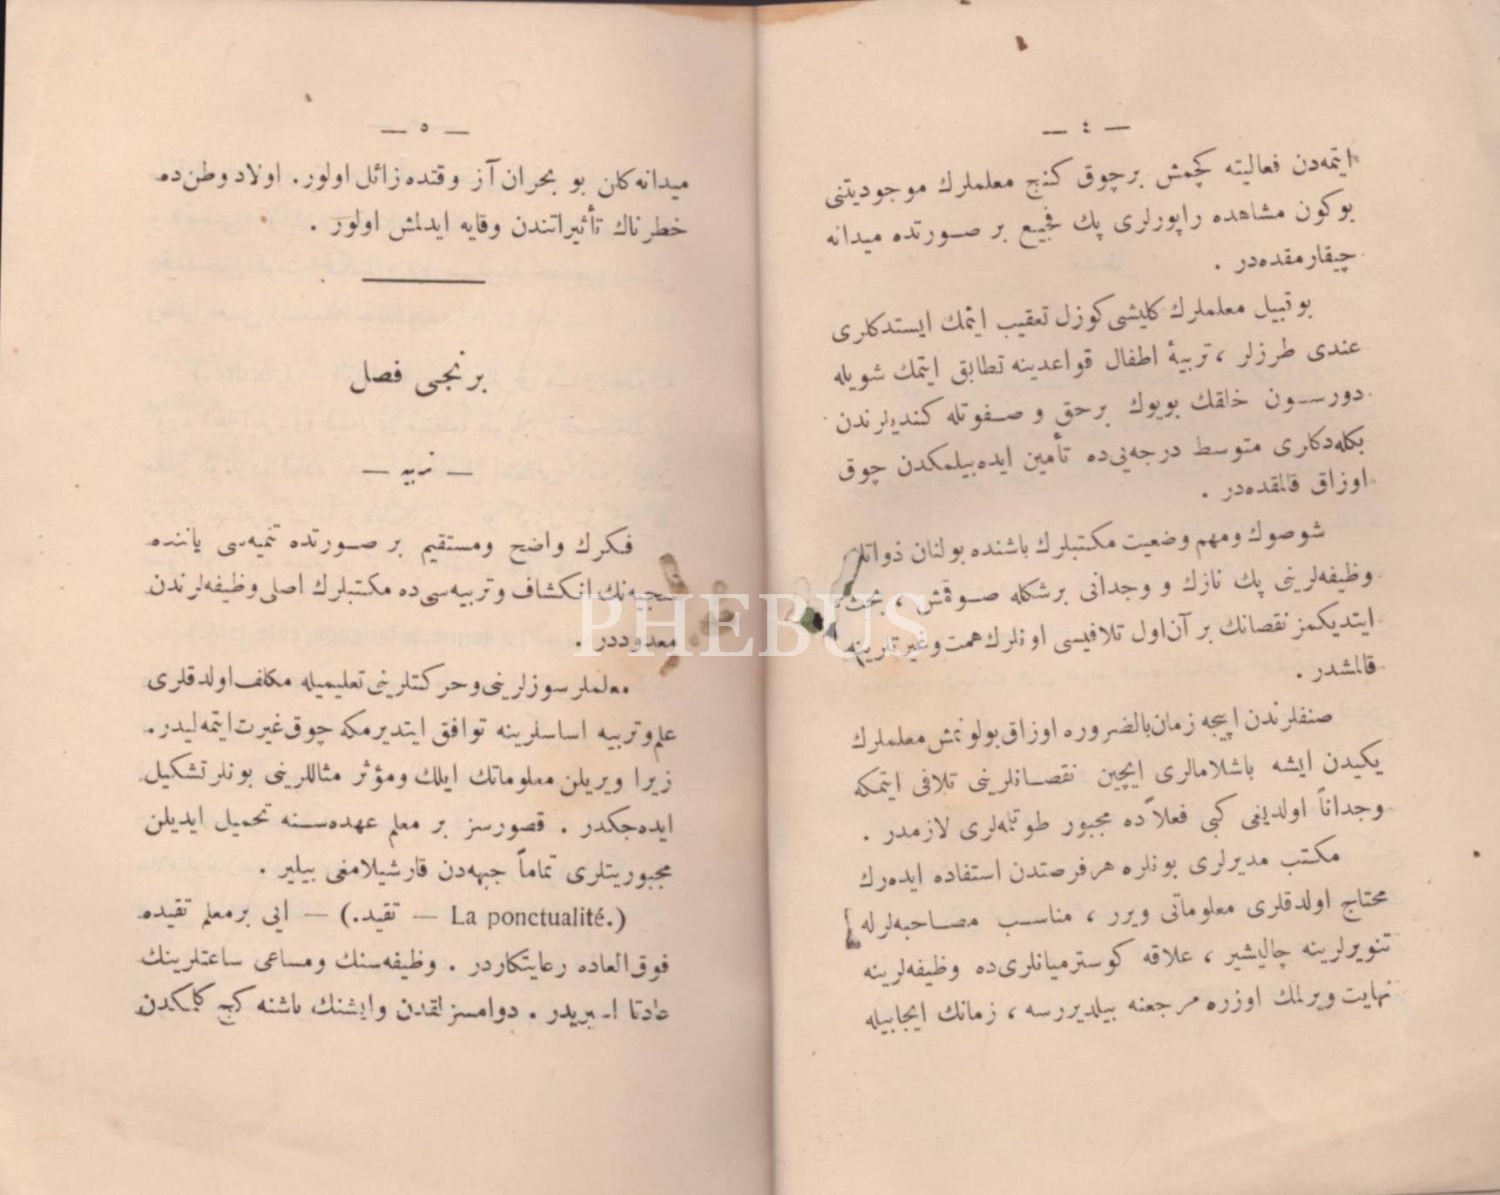 — ٤ —
ایتمه‌دن فعالیته کچمش برچوق کنج معلملرك موجودیتنی
بوکون مشاهده راپورلری پك فجیع بر صورتده میدانه
چیقارمقده‌در .
بوقبیل معلملرك کلیشی کوزل تعقیب ایتمك ایستدکلری
عندی طرزلر ، تربیهٔ اطفال قواعدینه تطابق ایتمك شویله
دورسون خلقك بویوك برحق و صفوتله کندیلرندن
بکله‌دکلری متوسط درجه‌یی‌ده تأمین ایده‌بیلمکدن چوق
اوزاق قالمقده‌در .
شوصوك ومهم وضعیت مکتبلرك باشنده بولنان ذواتك
وظیفه‌لرینی پك نازك و وجدانی برشکله صوقمش ، بحث
ایتدیکمز نقصانك بر آن‌اول تلافیسی اونلرك همت وغیرتلرینه
قالمشدر .
صنفلرندن اییجه زمان‌بالضروره اوزاق‌بولونمش‌معلملرك
یکیدن ایشه باشلامالری ایچین نقصانلرینی تلافی ایتمکه
وجداناً اولدیغی کبی فعلاًده مجبور طوتلمه‌لری لازمدر .
مکتب مدیرلری بونلره هرفرصتدن استفاده ایده‌رك
محتاج اولدقلری معلوماتی ویرر ، مناسب مصاحبه‌لرله
تنویرلرینه چالیشیر ، علاقه کوسترمیانلری‌ده وظیفه‌لرینه
نهایت ویرلمك اوزره مرجعنه بیلدیررسه ، زمانك ایجابیله
— ٥ —
میدانه‌کلن بو بحران آز وقتده زائل اولور. اولاد وطن‌ده
خطرناك تأثیراتندن وقایه ایدلمش اولور .
برنجی فصل
— تربیه —
فکرك واضح ومستقیم بر صورتده تنمیه‌سی یاننده
سجیه‌نك انکشاف وتربیه‌سی‌ده مکتبلرك اصلی وظیفه‌لرندن
معدوددر .
معلملرسوزلرینی‌وحرکتلرینی‌تعلیمیله مکلف‌اولدقلری
علم‌وتربیه اساسلرینه توافق ایتدیرمکه چوق‌غیرت‌ایتمه‌لیدر.
زیرا ویریلن معلوماتك ایلك ومؤثر مثاللرینی بونلرتشکیل
ایده‌جکدر . قصورسز بر معلم عهده‌سنه تحمیل ایدیلن
مجبوریتلری تماماً جبهه‌دن قارشیلامغی بیلیر .
(La ponctualité. — تقید.) — ایی برمعلم تقیده
فوق‌العاده رعایتکاردر . وظیفه‌سنك ومساعی ساعتلرینك
عادتا اسیریدر . دوامسزلقدن وایشنك باشنه کچ کلمکدن
PHEBUS